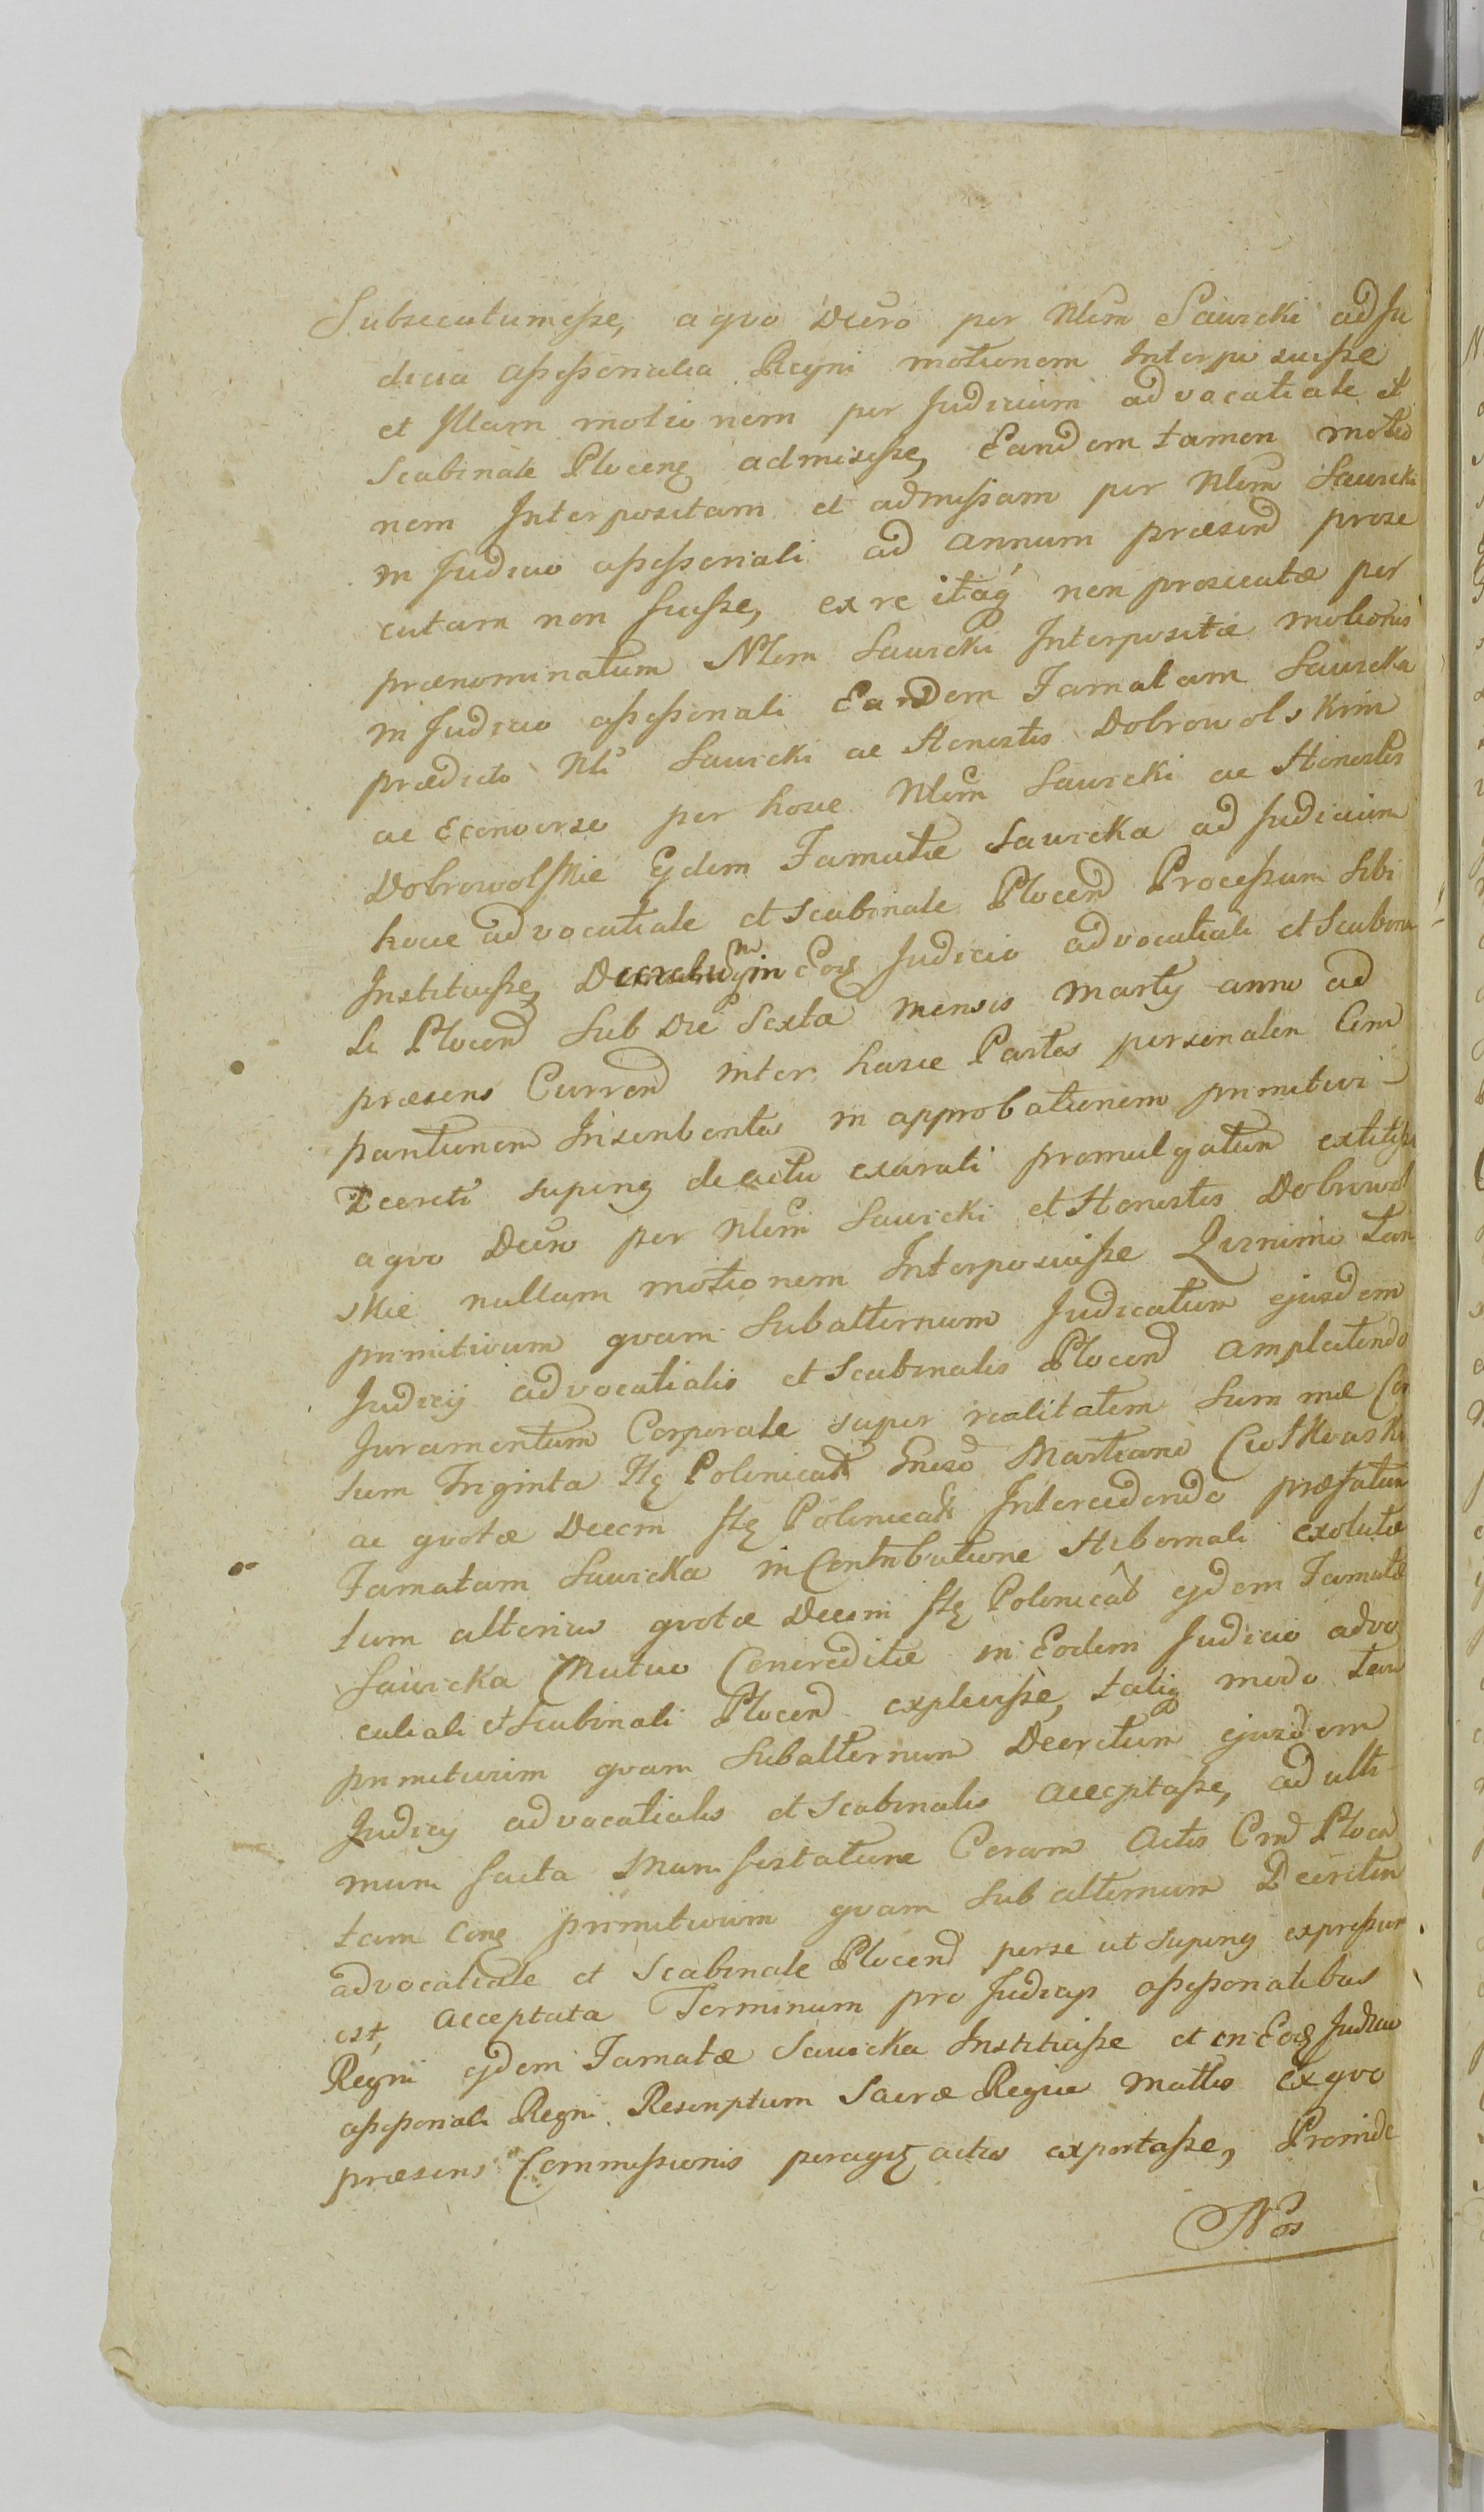 Subsecutum esse, a quo Decro per Nlem Sawicki ad Ju
dicia assessorialia Regni motionem Interposuisse
et Illam motionem per Judicium advocatiale et
Scabinale Plocens admisisse, Eandem tamen motio
nem Interpositam et admissam per Nlem Sawicki
in Judicio assessoriali ad annum præsend prose
cutam non fuisse, ex re itaq non prosecutæ per
prænominatum Nlem Sawicki Interpositæ motionis
in Judicio assessoriali Eandem Famatam Sawicka
prædicto Nli Sawicki ac Honestis Dobrowolskim
ac Econverso per hosce Nlem Sawicki ac Honestos
Dobrowolskie Ejdem Famatæ Sawicka ad Judicium
hocce advocatiale et Scabinale Plocend Processum Sibi
Instituisse, Decretumq in Eod Judicio advocatiali et Scabina
li Plocend Sub Die Sexta mensis Martij anno ad
præsens Currend inter hasce Partes personalem Com
paritionem Inserentes in approbationem primitivi
Decreti superius de actu exarati promulgatum extitisse
a quo Decro per Nlem Sawicki et Honestos Dobrowol
skie nullam motionem Interposuisse Quinimo tam
primitivum quam Subalternum Judicatum ejusdem
Judicij advocatialis et Scabinalis Plocend amplectendo
Juramentum Corporale super realitatem Summæ Cen
tum Triginta flq Polonical Gneso Martiano Ciołkowski
ac quotæ Decem flq Polonical Intercedendo præfatam
Famatam Sawicka in Contributione Hibernali exolutæ
tum alterius quotæ Decem flq Polonical ejdem Famatæ
Sawicka Mutuo Concreditæ in Eodem Judicio advo
catiali et Scabinali Plocend explevisse, taliq modo tam
primitivum quam Subalternum Decretum ejusdem
Judicij advocatialis et Scabinalis acceptasse, ad ulti
mum facta Manifestatione Coram Actis Cnd Plocen
tam Conq primitivum quam Subalternum Decretum
advocatiale et Scabinale Plocend per se ut superius expressum
est, acceptata Terminum pro Judicijs assessorialibus
Regni ejdem Famatæ Sawicka Instituisse et in Eod Judicio
assessoriali Regni Rescriptum Sacræ Regiæ Mattis ex quo
præsens Commissionis peragit actus exportasse, Proinde
Nos